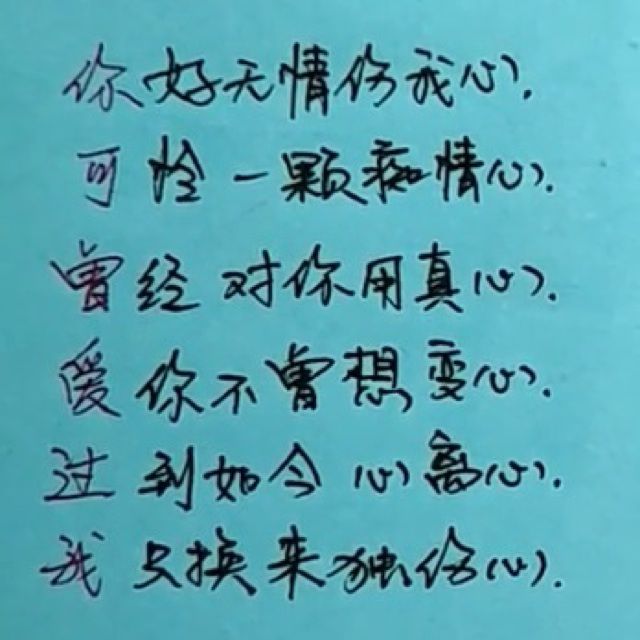 你好无情伤我心.
可怜一颗痴情心.
曾经对你用真心.
爱你不曾想变心.
过到如今心离心.
我只换来独伤心.